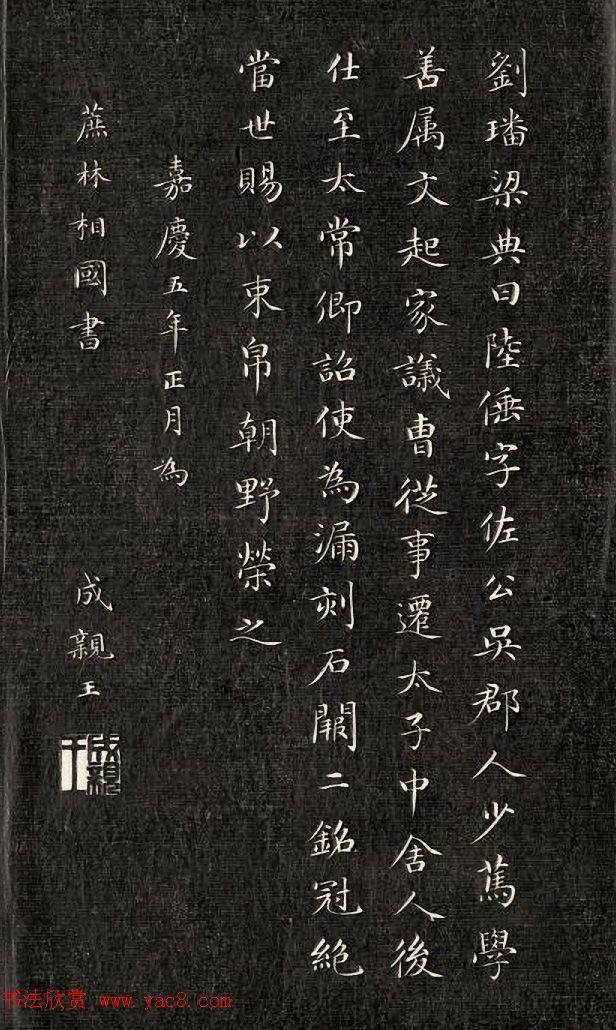 劉璠梁典曰陸倕字佐公吳郡人少篤學
善属文起家議曹從事遷太子中舍人後
仕至太常卿詔使為漏刻石闕二銘冠絕
當世賜以束帛朝野榮之
嘉慶五年正月為
蔗林相國書
成親王
成親王
书法欣赏 www.yac8.com